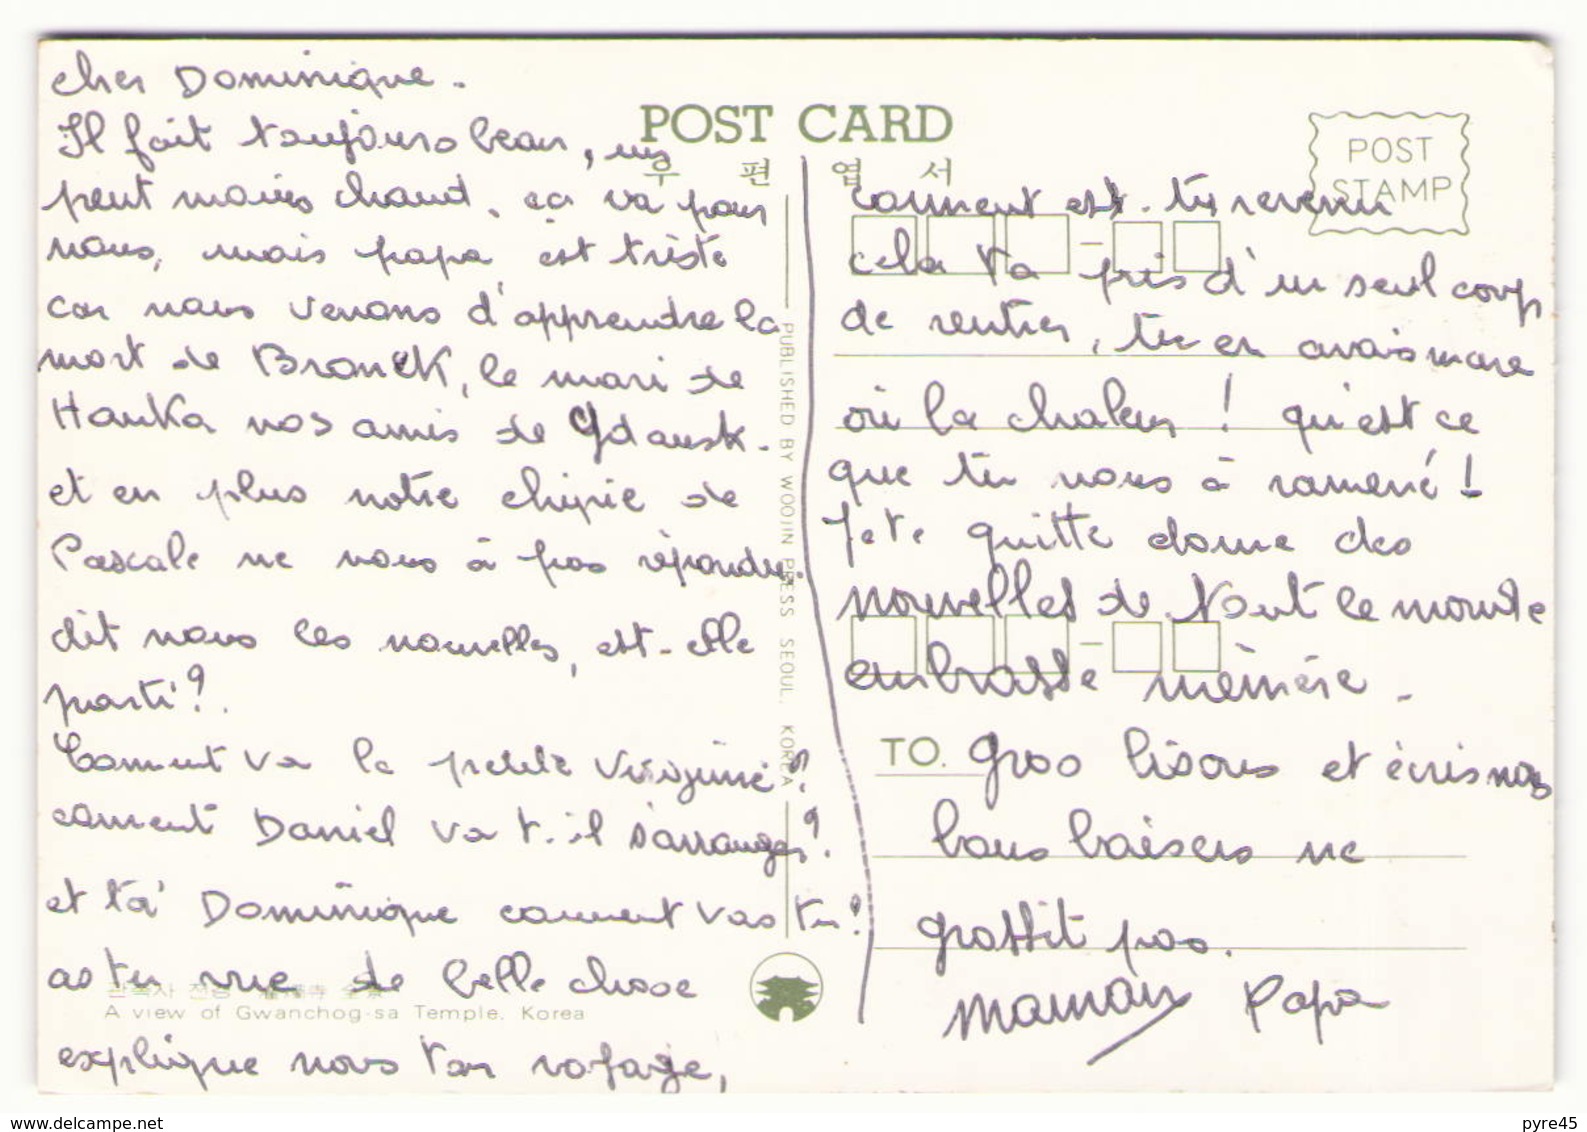 cher Dominique.
Il fait toujours beau, un
peut moins chaud, ça va pour
nous, mais papa est triste
car nous venons d'apprendre la
mort de Bronek, le mari de
Hanka nos amis de Gdansk.
et en plus notre chipie de
Pascale ne nous à pas répondu.
dit nous les nouvelles, est-elle
parti?.
Comment va la petite Virginie?
comment Daniel va t-il s'arranger?.
et toi Dominique comment vas tu?
as tu vue de belle chose
explique nous ton voyage,
관촉사 전경 灌燭寺 全景
A view of Gwanchog-sa Temple. Korea
POST CARD
우 편 엽 서
POST
STAMP
PUBLISHED BY WOOJIN PRESS SEOUL. KOREA
comment est-tu revenu
cela t'a pris d'un seul coup
de rentrer, tu en avais mare
où la chaleur! qu'est ce
que tu nous à ramené!
Je te quitte donne des
nouvelles de tout le monde
embrasse mémère.
TO. Gros bisous et écris nous
bons baisers ne
grossit pas.
maman Papa
www.delcampe.net
pyre45